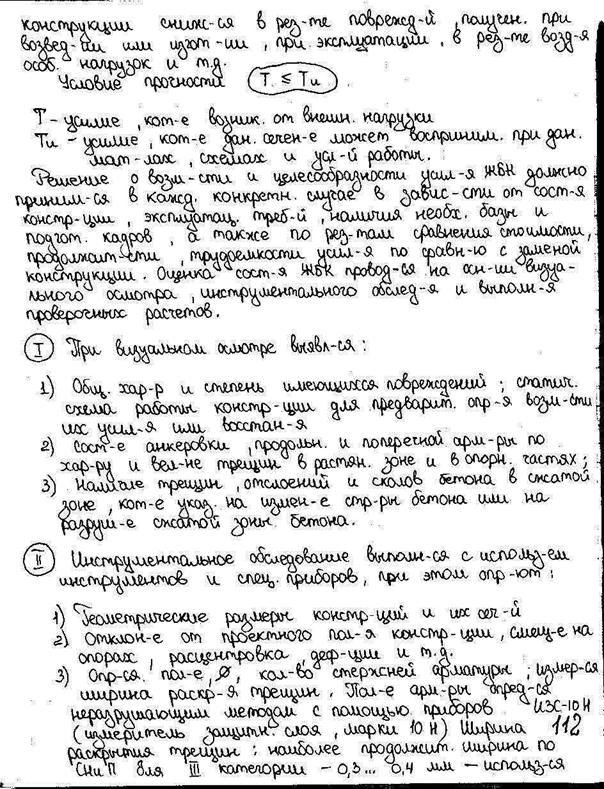 конструкции сниж-ся в рез-те поврежд-й, получен. при
возвед-ии или изгот-ии, при эксплуатации, в рез-те возд-я
особ. нагрузок и т.д.
Условие прочности T ≤ Tи
T – усилие, кот-е возник. от внешн. нагрузки
Tи – усилие, кот-е дан. сечен-е может восприним. при дан.
мат-лах, схемах и усл-й работы.
Решение о возм-сти и целесообразности усил-я ЖБК должно
приним-ся в кажд. конкретн. случае в завис-сти от сост-я
констр-ции, эксплуатац. треб-й, наличия необх. базы и
подгот. кадров, а также по рез-там сравнения стоимости,
продолжит-сти, трудоемкости усил-я по сравн-ю с заменой
конструкции. Оценка сост-я ЖБК провод-ся на осн-ии визуа-
льного осмотра, инструментального обслед-я и выполн-я
проверочных расчетов.
I При визуальном осмотре выявл-ся:
1) Общ. хар-р и степень имеющихся повреждений; статич.
схема работы констр-ции для предварит. опр-я возм-сти
их усил-я или восстан-я
2) Сост-е анкеровки, продольн. и поперечной арм-ры по
хар-ру и вел-не трещин в растян. зоне и в опорн. частях;
3) Наличие трещин, отслоений и сколов бетона в сжатой
зоне, кот-е указ. на измен-е стр-ры бетона или на
разруш-е сжатой зоны бетона.
II Инструментальное обследование выполн-ся с использ-ем
инструментов и спец. приборов, при этом опр-ют:
1) Геометрические размеры констр-ций и их сеч-й
2) Отклон-е от проектного пол-я констр-ции, смещ-е на
опорах, расцентровка, деф-ции и т.д.
3) Опр-ся. пол-е, ∅, кол-во стержней арматуры; измер-ся
ширина раскр-я трещин. Пол-е арм-ры опред-ся
неразрушающим методом с помощью приборов ИЗС-10Н
(измеритель защитн. слоя, марки 10Н) Ширина 112
раскрытия трещин: наиболее продолжит. ширина по
СНиП для III категории – 0,3...0,4 мм – использ-ся